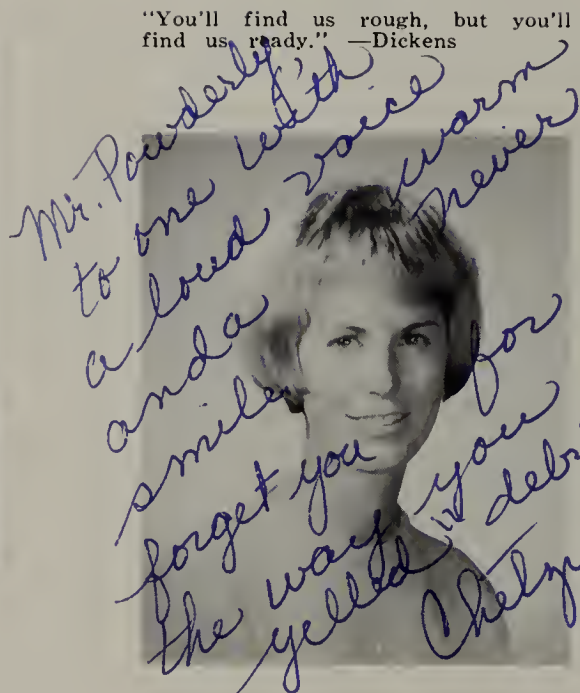 "You'll find us rough, but you'll
find us ready." —Dickens
Mr. Powderly,
to one with
a loud voice
and a warm
smile never
forget you for
the way you
yelled "debr